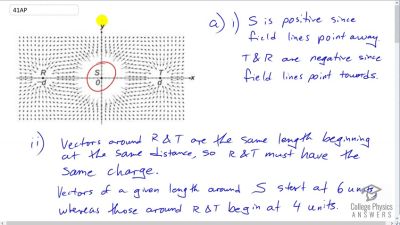 41AP
a) i) S is positive since
field lines point away.
T & R are negative since
field lines point towards.
y
R S T
-d 0 d x
ii) Vectors around R & T are the same length beginning
at the same distance, so R & T must have the
same charge.
Vectors of a given length around S start at 6 units
whereas those around R & T begin at 4 units.
College Physics
ANSWERS